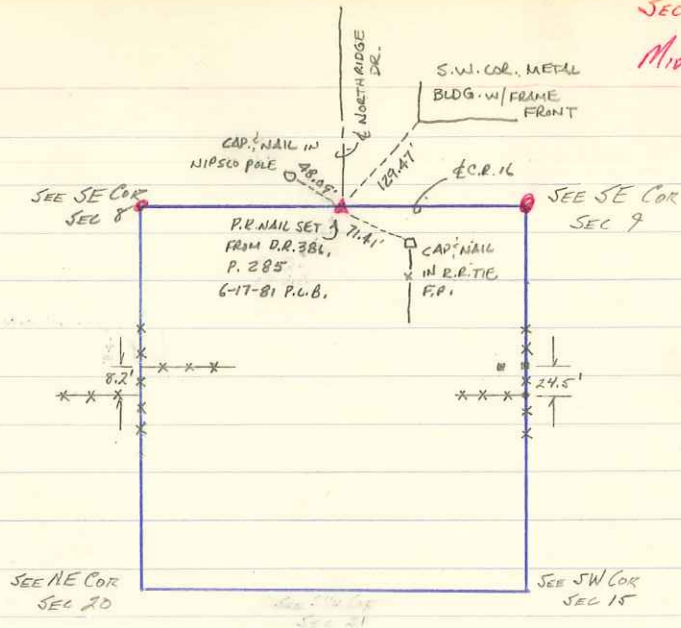 SEC
MID
℄ NORTHRIDGE
DR.
S.W. COR. METAL
BLDG. W/ FRAME
FRONT
CAP & NAIL IN
NIPSCO POLE
48.09'
129.47'
℄ C.R. 16
SEE SE COR
SEC 8
SEE SE COR
SEC 9
P.K. NAIL SET
FROM D.R. 386,
P. 285
6-17-81 P.L.B.
71.41'
CAP & NAIL
IN R.R. TIE
F.P.
8.2'
24.5'
SEE NE COR
SEC 20
SEE SW COR
SEC 15
SEC 21